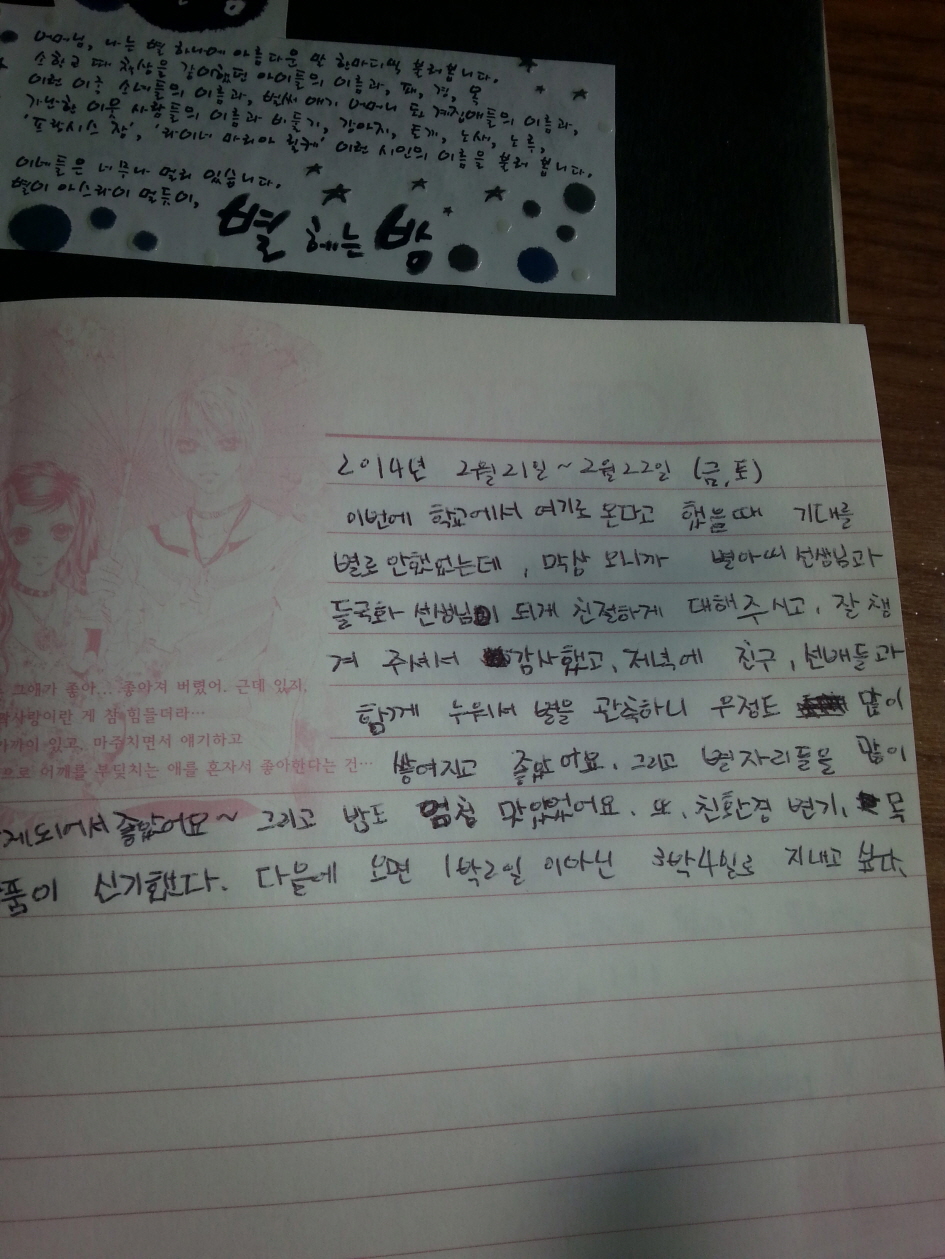 어머님, 나는 별 하나에 아름다운 말 한마디씩 불러봅니다.
소학교 때 책상을 같이했던 아이들의 이름과, 패, 경, 옥
이런 이국 소녀들의 이름과, 벌써 애기 어머니 된 계집애들의 이름과,
가난한 이웃 사람들의 이름과 비둘기, 강아지, 토끼, 노새, 노루,
'프랑시스 잠', '라이너 마리아 릴케' 이런 시인의 이름을 불러 봅니다.
이네들은 너무나 멀리 있습니다.
별이 아스라이 멀듯이,
별 헤는 밤
2014년 2월21일 ~ 2월22일 (금,토)
이번에 학교에서 여기로 온다고 했을때 기대를
별로 안했었는데, 막상 오니까 별아띠 선생님과
들국화 선생님이 되게 친절하게 대해주시고, 잘 챙
겨 주셔서 감사했고, 저녁에 친구, 선배들과
함께 누워서 별을 관측하니 우정도 많이
쌓여지고 좋았어요. 그리고 별자리들을 많이
게 되어서 좋았어요~ 그리고 밥도 엄청 맛있었어요. 또, 친환경 변기, 목
품이 신기했다. 다음에 오면 1박2일 이아닌 3박4일로 지내고 싶다.
그애가 좋아... 좋아져 버렸어. 근데 있지,
짝사랑이란 게 참 힘들더라…
가까이 있고, 마주치면서 얘기하고
으로 어깨를 부딪치는 애를 혼자서 좋아한다는 건…